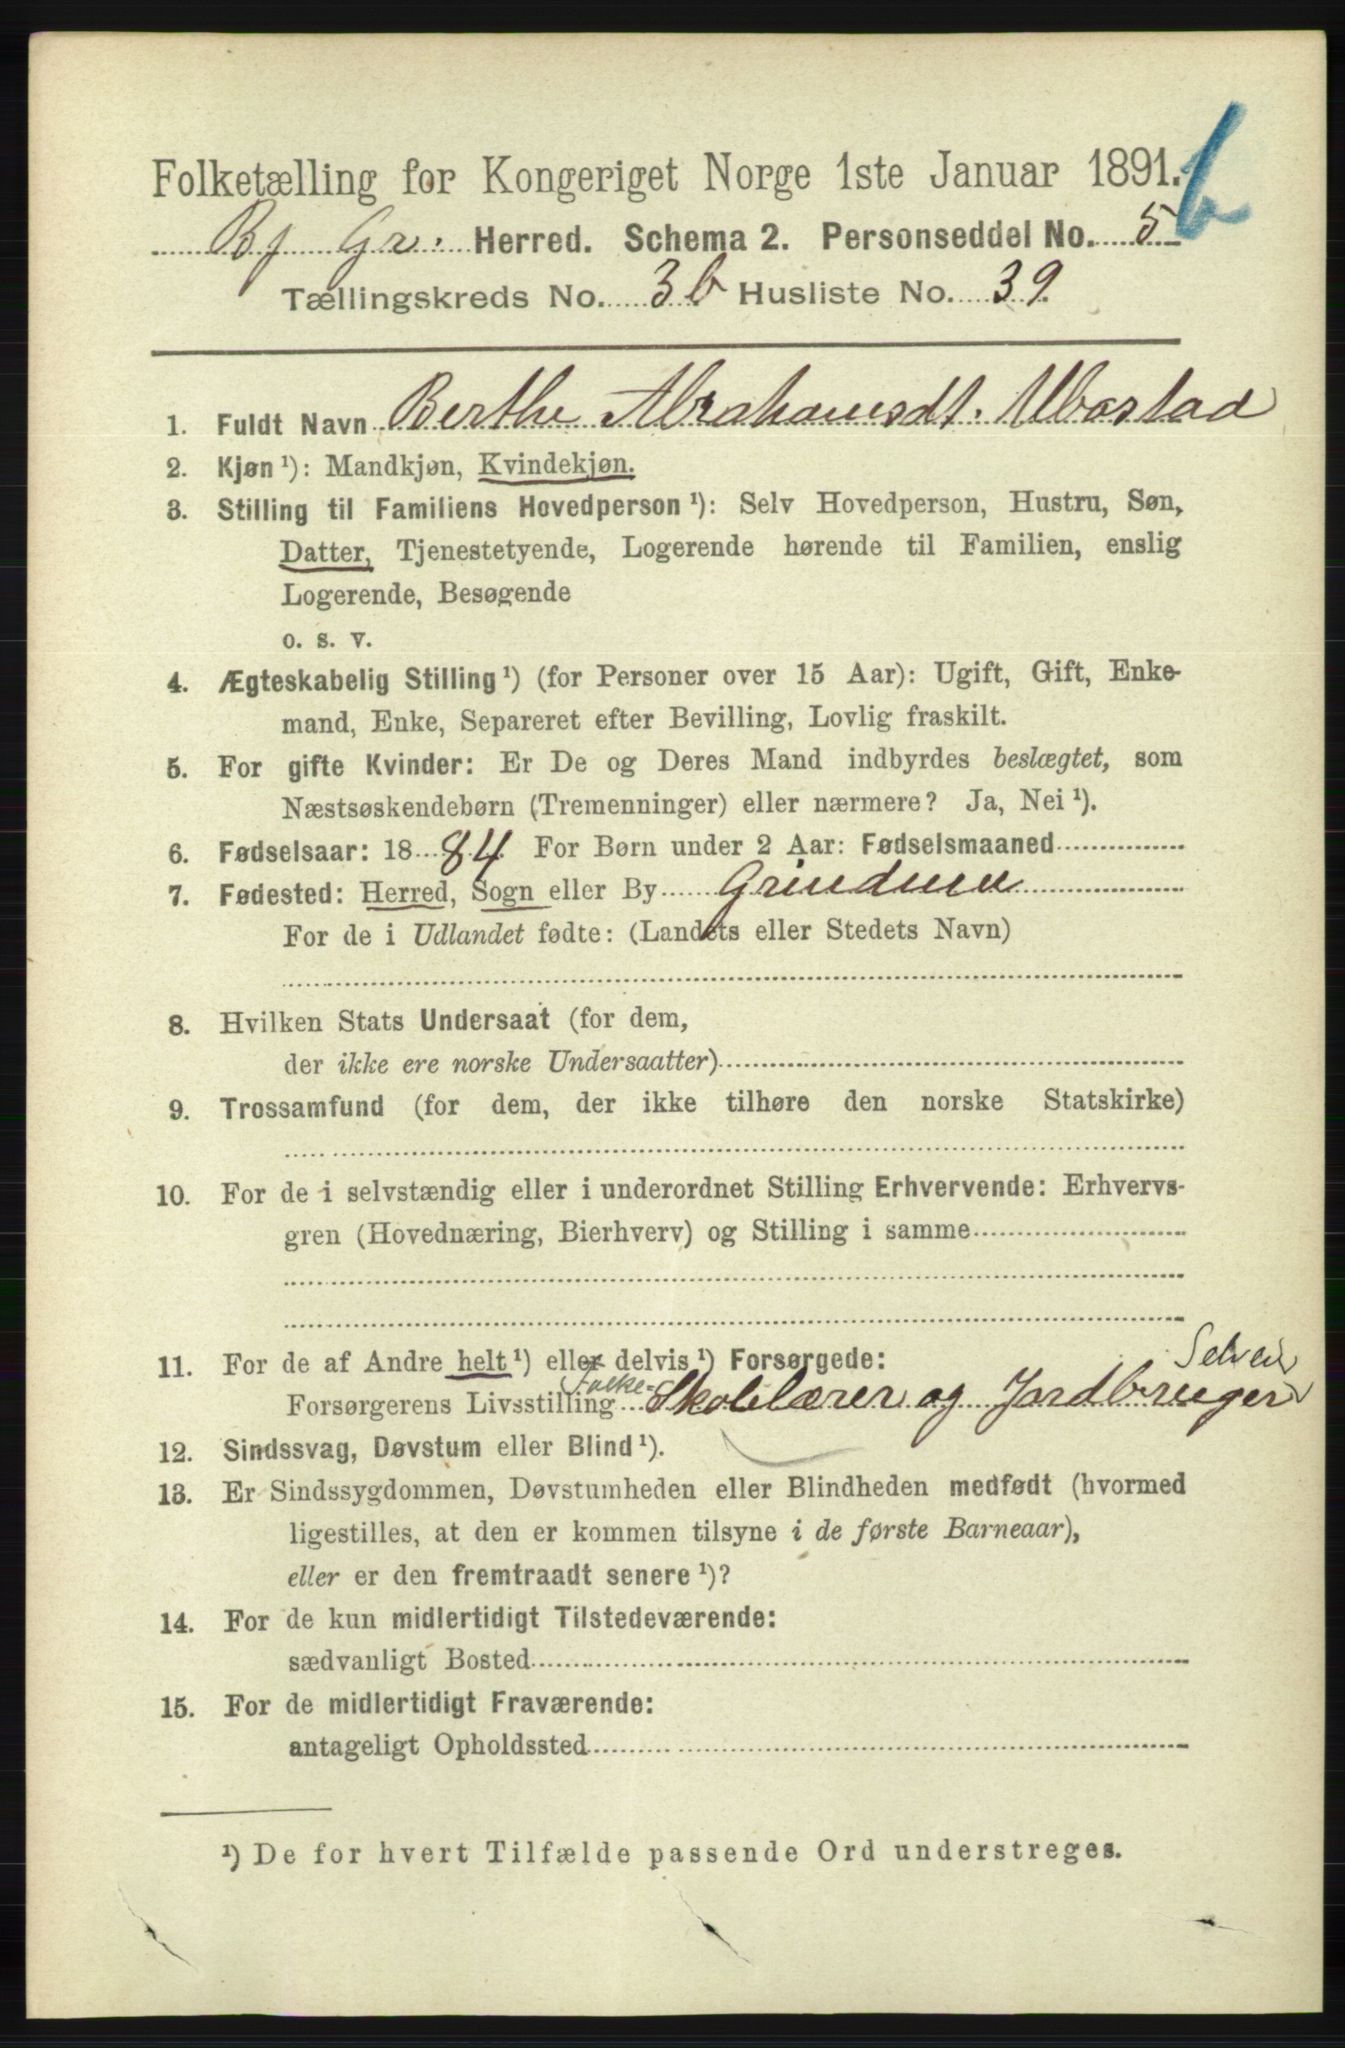 b
Folketælling for Kongeriget Norge 1ste Januar 1891.
Bj Gr. Herred. Schema 2. Personseddel No. 5
Tællingskreds No. 3b Husliste No. 39.
1. Fuldt Navn Berthe Abrahamsdt. Ubostad
2. Kjøn ¹): Mandkjøn, Kvindekjøn.
3. Stilling til Familiens Hovedperson ¹): Selv Hovedperson, Hustru, Søn,
Datter, Tjenestetyende, Logerende hørende til Familien, enslig
Logerende, Besøgende
o. s. v.
4. Ægteskabelig Stilling ¹) (for Personer over 15 Aar): Ugift, Gift, Enke-
mand, Enke, Separeret efter Bevilling, Lovlig fraskilt.
5. For gifte Kvinder: Er De og Deres Mand indbyrdes beslægtet, som
Næstsøskendebørn (Tremenninger) eller nærmere? Ja, Nei ¹).
6. Fødselsaar: 1884. For Børn under 2 Aar: Fødselsmaaned
7. Fødested: Herred, Sogn eller By Grindum
For de i Udlandet fødte: (Landets eller Stedets Navn)
8. Hvilken Stats Undersaat (for dem,
der ikke ere norske Undersaatter)
9. Trossamfund (for dem, der ikke tilhøre den norske Statskirke)
10. For de i selvstændig eller i underordnet Stilling Erhvervende: Erhvervs-
gren (Hovednæring, Bierhverv) og Stilling i samme
11. For de af Andre helt ¹) eller delvis ¹) Forsørgede:
Selveier
Forsørgerens Livsstilling Folke-Skolelærer og Jordbruger
12. Sindssvag, Døvstum eller Blind ¹).
13. Er Sindssygdommen, Døvstumheden eller Blindheden medfødt (hvormed
ligestilles, at den er kommen tilsyne i de første Barneaar),
eller er den fremtraadt senere ¹)?
14. For de kun midlertidigt Tilstedeværende:
sædvanligt Bosted
15. For de midlertidigt Fraværende:
antageligt Opholdssted
¹) De for hvert Tilfælde passende Ord understreges.